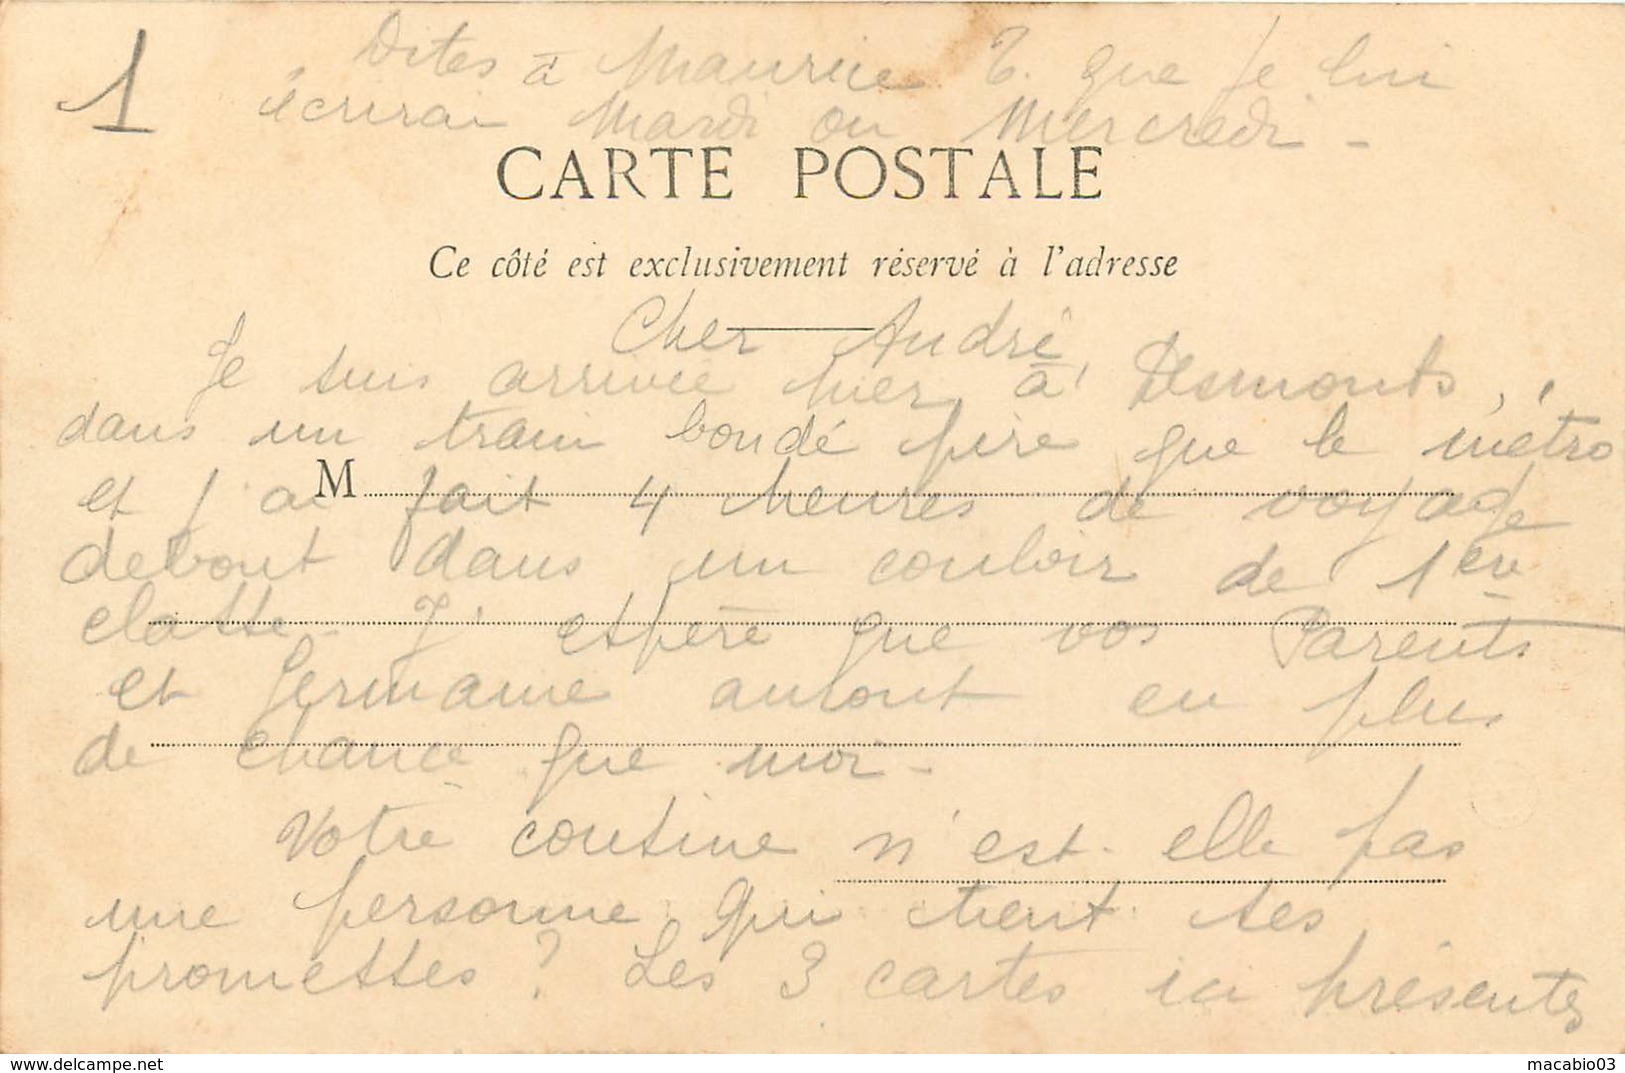 1
Dites à Maurice T. que je lui
écrirai Mardi ou Mercredi -
CARTE POSTALE
Ce côté est exclusivement réservé à l'adresse
Cher André,
Je suis arrivée hier à Desmonts,
dans un train bondé pire que le métro
M
et j'ai fait 4 heures de voyage
debout dans un couloir de 1ère
classe - J'espère que vos Parents
et Germaine auront eu plus
de chance que moi -
Votre cousine n'est-elle pas
une personne qui tient ses
promesses ? Les 3 cartes ici présentes
www.delcampe.net
macabio03